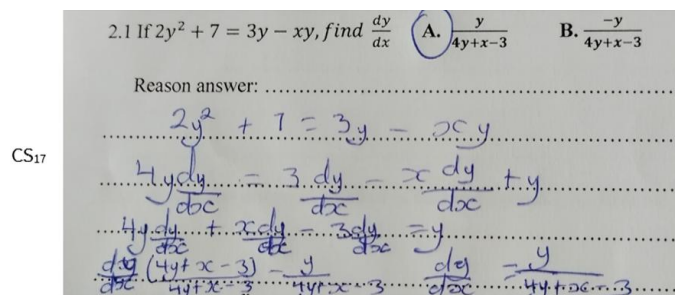 2.1 If 2y² + 7 = 3y − xy, find dy/dx A. y/4y+x−3 B. −y/4y+x−3
Reason answer: ..........
CS17
2y² + 7 = 3y − xy
4y dy/dx = 3 dy/dx − x dy/dx + y
4y dy/dx + x dy/dx − 3 dy/dx = y
dy/dx (4y + x − 3)/4y + x − 3 = y/4y + x − 3 dy/dx = y/4y + x − 3